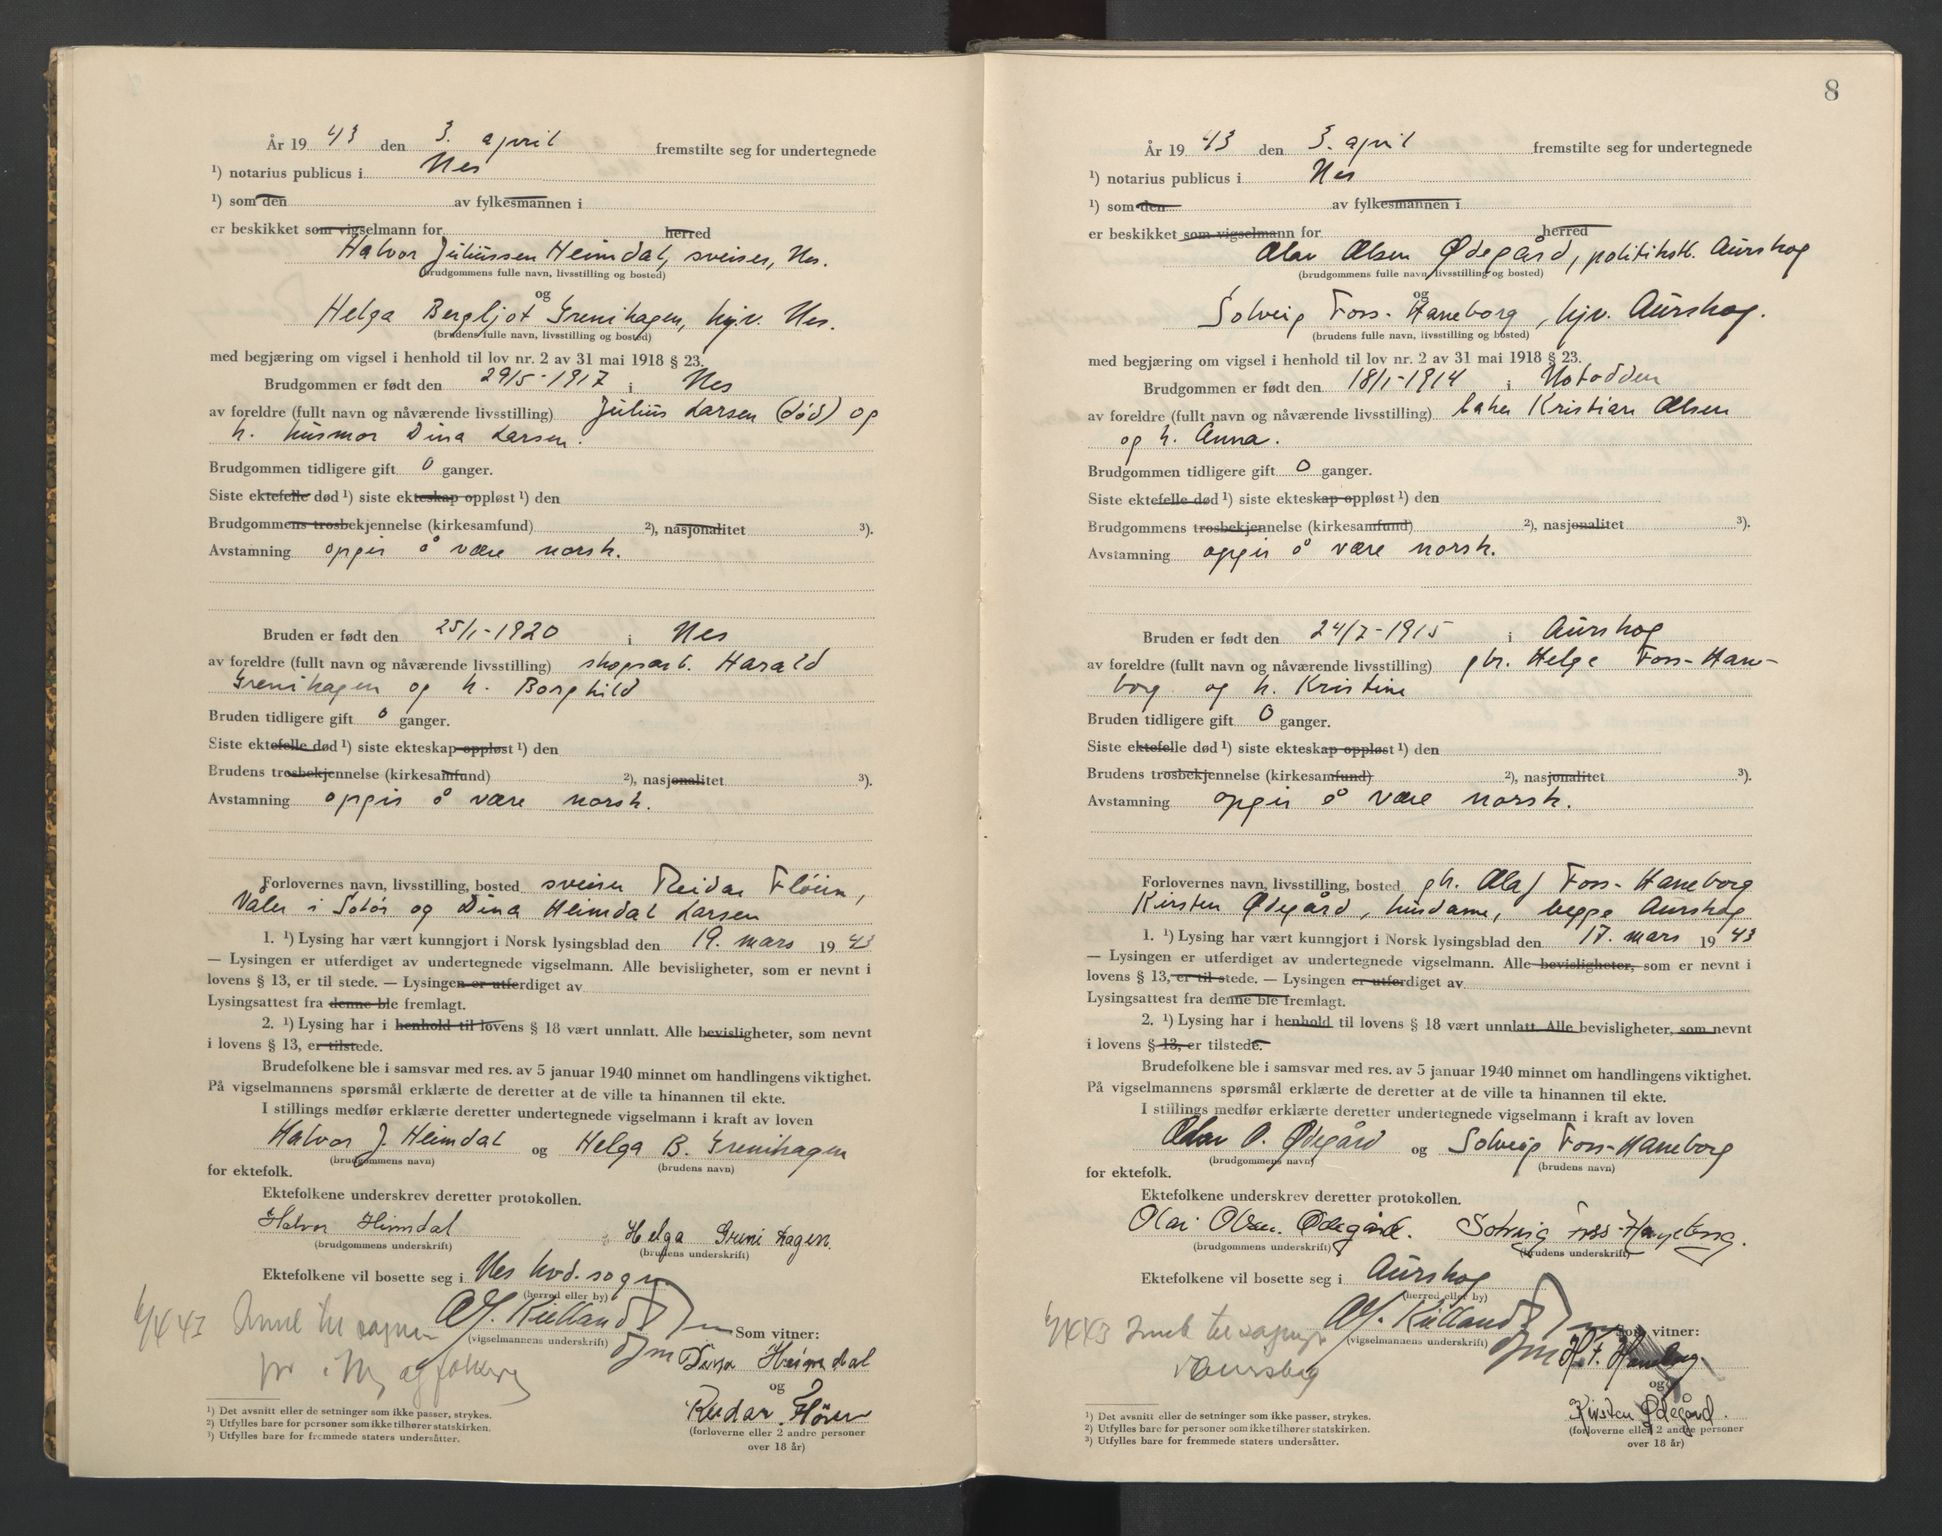 År 19 43 den 3. april fremstilte seg for undertegnede
¹) notarius publicus i Nes
¹) som den av fylkesmannen i
er beskikket som vigselmann for herred
Halvor Juliussen Heimdal, sveiser, Nes.
(brudgommens fulle navn, livsstilling og bosted)
og
Helga Bergljot Grenihagen, hjv. Nes.
(brudens fulle navn, livsstilling og bosted)
med begjæring om vigsel i henhold til lov nr. 2 av 31 mai 1918 § 23.
Brudgommen er født den 29/5-1917 i Nes
av foreldre (fullt navn og nåværende livsstilling) Julius Larsen (død) og
h. husmor Dina Larsen.
Brudgommen tidligere gift 0 ganger.
Siste ektefelle død ¹) siste ekteskap oppløst ¹) den
Brudgommens trosbekjennelse (kirkesamfund) ²), nasjonalitet ³).
Avstamning opgir å være norsk.
Bruden er født den 25/1-1920 i Nes
av foreldre (fullt navn og nåværende livsstilling) skogsarb. Harald
Grenihagen og h. Borghild
Bruden tidligere gift 0 ganger.
Siste ektefelle død ¹) siste ekteskap oppløst ¹) den
Brudens trosbekjennelse (kirkesamfund) ²), nasjonalitet ³).
Avstamning opgir å være norsk.
Forlovernes navn, livsstilling, bosted sveiser Reidar Fløien,
Våler i Solør og Dina Heimdal Larsen
1. ¹) Lysing har vært kunngjort i Norsk lysingsblad den 19. mars 19 43
— Lysingen er utferdiget av undertegnede vigselmann. Alle bevisligheter, som er nevnt i
lovens § 13, er til stede. — Lysingen er utferdiget av
Lysingsattest fra denne ble fremlagt.
2. ¹) Lysing har i henhold til lovens § 18 vært unnlatt. Alle bevisligheter, som nevnt
i lovens § 13, er tilstede.
Brudefolkene ble i samsvar med res. av 5 januar 1940 minnet om handlingens viktighet.
På vigselmannens spørsmål erklærte de deretter at de ville ta hinannen til ekte.
I stillings medfør erklærte deretter undertegnede vigselmann i kraft av loven
Halvor J. Heimdal og Helga B. Grenihagen
(brudgommens navn) (brudens navn)
for ektefolk.
Ektefolkene underskrev deretter protokollen.
Halvor Heimdal Helga Greni Hagen
(brudgommens underskrift) (brudens underskrift)
Ektefolkene vil bosette seg i Nes hvd. sogn
(herred eller by)
Kielland
(vigselmannens underskrift) Som vitner:
Dina Heimdal
og
Reidar Fløien
(forloverne eller 2 andre personer
over 18 år)
¹) Det avsnitt eller de setninger som ikke passer, strykes.
²) Utfylles bare for personer som ikke tilhører statskirken.
³) Utfylles bare for fremmede staters undersåtter.
8
År 19 43 den 3. april fremstilte seg for undertegnede
¹) notarius publicus i Nes
¹) som den av fylkesmannen i
er beskikket som vigselmann for herred
Olav Olsen Ødegård, politikst. Aurskog
(brudgommens fulle navn, livsstilling og bosted)
og
Solveig Foss-Haneborg, hjv. Aurskog.
(brudens fulle navn, livsstilling og bosted)
med begjæring om vigsel i henhold til lov nr. 2 av 31 mai 1918 § 23.
Brudgommen er født den 18/1-1914 i Notodden
av foreldre (fullt navn og nåværende livsstilling) baker Kristian Olsen
og h. Anna.
Brudgommen tidligere gift 0 ganger.
Siste ektefelle død ¹) siste ekteskap oppløst ¹) den
Brudgommens trosbekjennelse (kirkesamfund) ²), nasjonalitet ³).
Avstamning opgir å være norsk.
Bruden er født den 24/7-1915 i Aurskog
av foreldre (fullt navn og nåværende livsstilling) gbr. Helge Foss-Hane-
borg og h. Kristine
Bruden tidligere gift 0 ganger.
Siste ektefelle død ¹) siste ekteskap oppløst ¹) den
Brudens trosbekjennelse (kirkesamfund) ²), nasjonalitet ³).
Avstamning opgir å være norsk.
Forlovernes navn, livsstilling, bosted gbr. Olaf Foss-Haneborg
Kirsten Ødegård, husdame, begge Aurskog
1. ¹) Lysing har vært kunngjort i Norsk lysingsblad den 17. mars 19 43
— Lysingen er utferdiget av undertegnede vigselmann. Alle bevisligheter, som er nevnt i
lovens § 13, er til stede. — Lysingen er utferdiget av
Lysingsattest fra denne ble fremlagt.
2. ¹) Lysing har i henhold til lovens § 18 vært unnlatt. Alle bevisligheter, som nevnt
i lovens § 13, er tilstede.
Brudefolkene ble i samsvar med res. av 5 januar 1940 minnet om handlingens viktighet.
På vigselmannens spørsmål erklærte de deretter at de ville ta hinannen til ekte.
I stillings medfør erklærte deretter undertegnede vigselmann i kraft av loven
Olav O. Ødegård og Solveig Foss-Haneborg
(brudgommens navn) (brudens navn)
for ektefolk.
Ektefolkene underskrev deretter protokollen.
Olav Olsen Ødegård. Solveig Foss-Haneborg.
(brudgommens underskrift) (brudens underskrift)
Ektefolkene vil bosette seg i Aurskog
(herred eller by)
Kielland
(vigselmannens underskrift) Som vitner:
Haneborg
og
Kirsten Ødegård.
(forloverne eller 2 andre personer
over 18 år)
¹) Det avsnitt eller de setninger som ikke passer, strykes.
²) Utfylles bare for personer som ikke tilhører statskirken.
³) Utfylles bare for fremmede staters undersåtter.